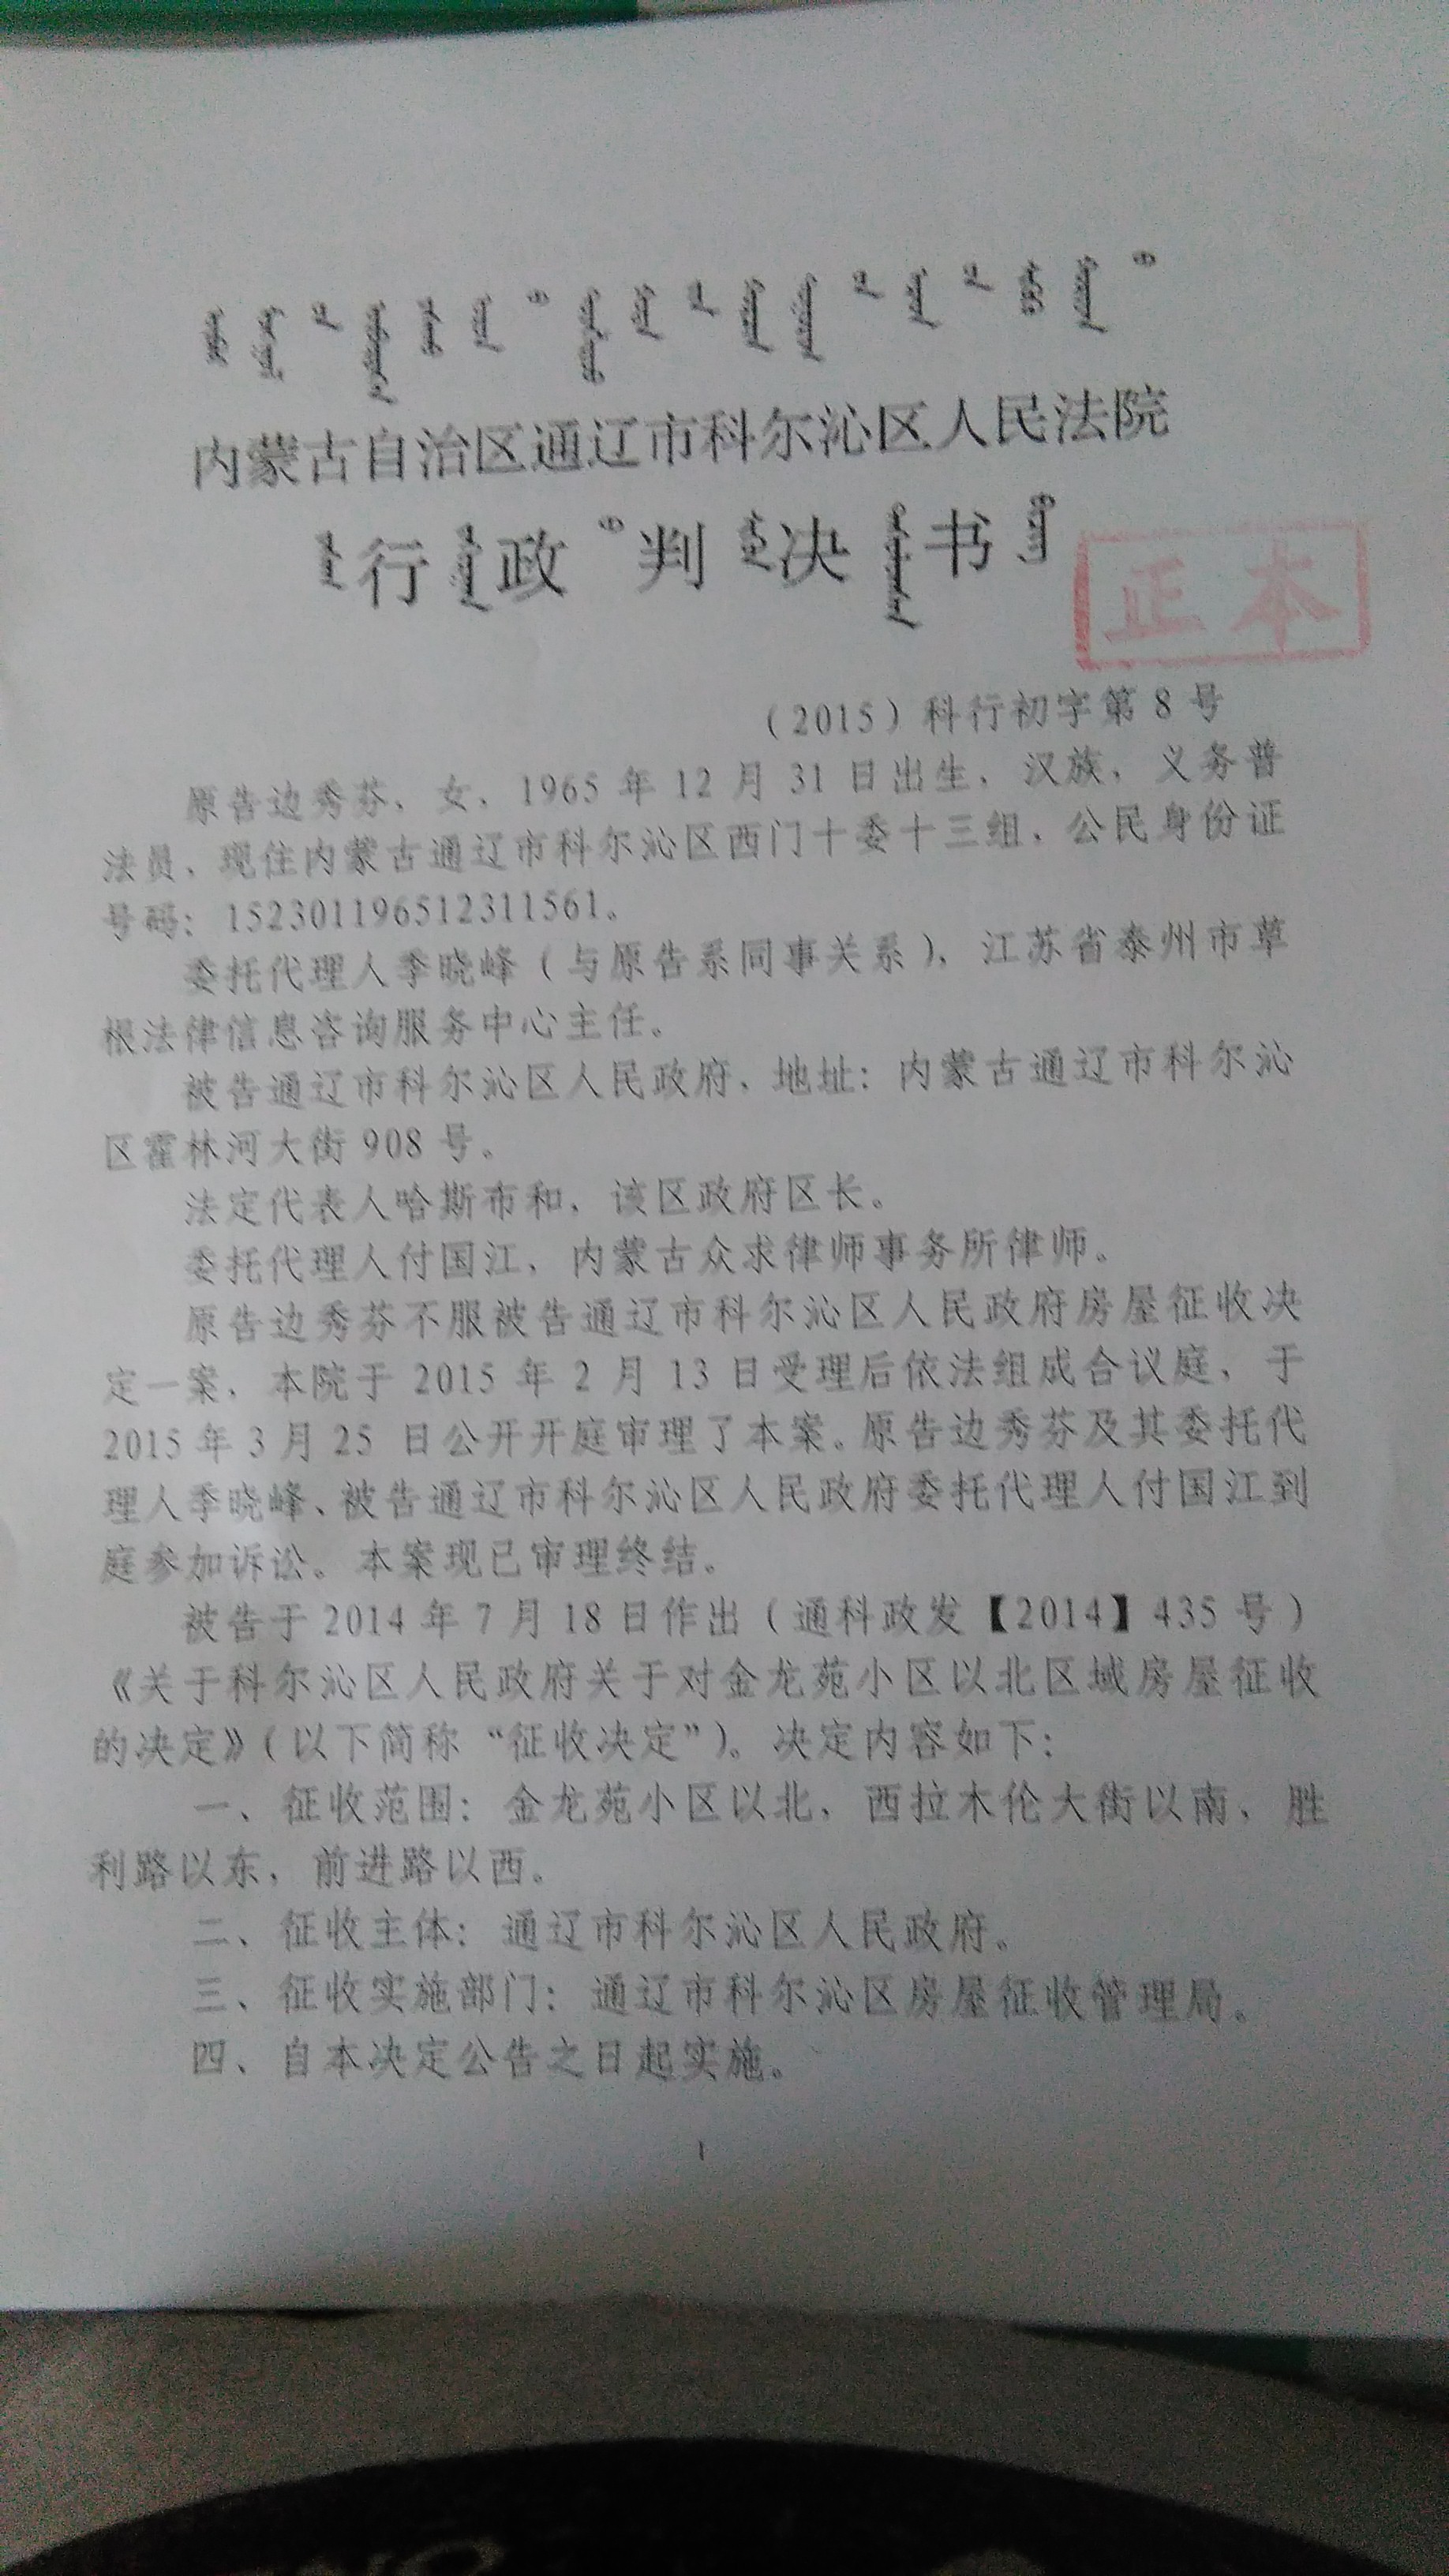 内蒙古自治区通辽市科尔沁区人民法院
行政判决书
正本
（2015）科行初字第 8 号
原告边秀芬，女，1965 年 12 月 31 日出生，汉族，义务普
法员，现住内蒙古通辽市科尔沁区西门十委十三组，公民身份证
号码：152301196512311561。
委托代理人季晓峰（与原告系同事关系），江苏省泰州市草
根法律信息咨询服务中心主任。
被告通辽市科尔沁区人民政府，地址：内蒙古通辽市科尔沁
区霍林河大街 908 号。
法定代表人哈斯布和，该区政府区长。
委托代理人付国江，内蒙古众求律师事务所律师。
原告边秀芬不服被告通辽市科尔沁区人民政府房屋征收决
定一案，本院于 2015 年 2 月 13 日受理后依法组成合议庭，于
2015 年 3 月 25 日公开开庭审理了本案。原告边秀芬及其委托代
理人季晓峰、被告通辽市科尔沁区人民政府委托代理人付国江到
庭参加诉讼。本案现已审理终结。
被告于 2014 年 7 月 18 日作出（通科政发【2014】435 号）
《关于科尔沁区人民政府关于对金龙苑小区以北区域房屋征收
的决定》（以下简称“征收决定”）。决定内容如下：
一、征收范围：金龙苑小区以北，西拉木伦大街以南，胜
利路以东，前进路以西。
二、征收主体：通辽市科尔沁区人民政府。
三、征收实施部门：通辽市科尔沁区房屋征收管理局。
四、自本决定公告之日起实施。
1